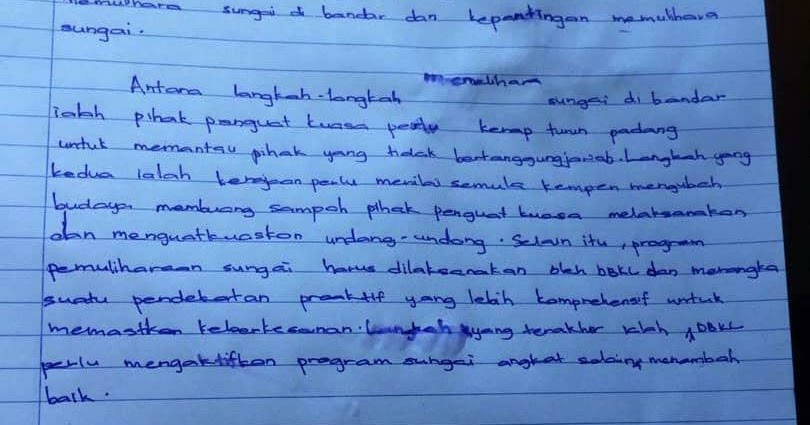 memulihara sungai di bandar dan kepentingan memulihara
sungai.
Antara langkah-langkah memelihara sungai di bandar
ialah pihak penguat kuasa perlu kerap turun padang
untuk memantau pihak yang tidak bertanggungjawab. Langkah yang
kedua ialah kerajaan perlu menilai semula kempen mengubah
budaya membuang sampah pihak penguat kuasa melaksanakan
dan menguatkuaskan undang-undang. Selain itu, program
pemuliharaan sungai harus dilaksanakan oleh DBKL dan merangka
suatu pendekatan proaktif yang lebih komprehensif untuk
memastikan keberkesanan. Langkah yang terakhir ialah DBKL
perlu mengaktifkan program sungai angkat menambah
baik.